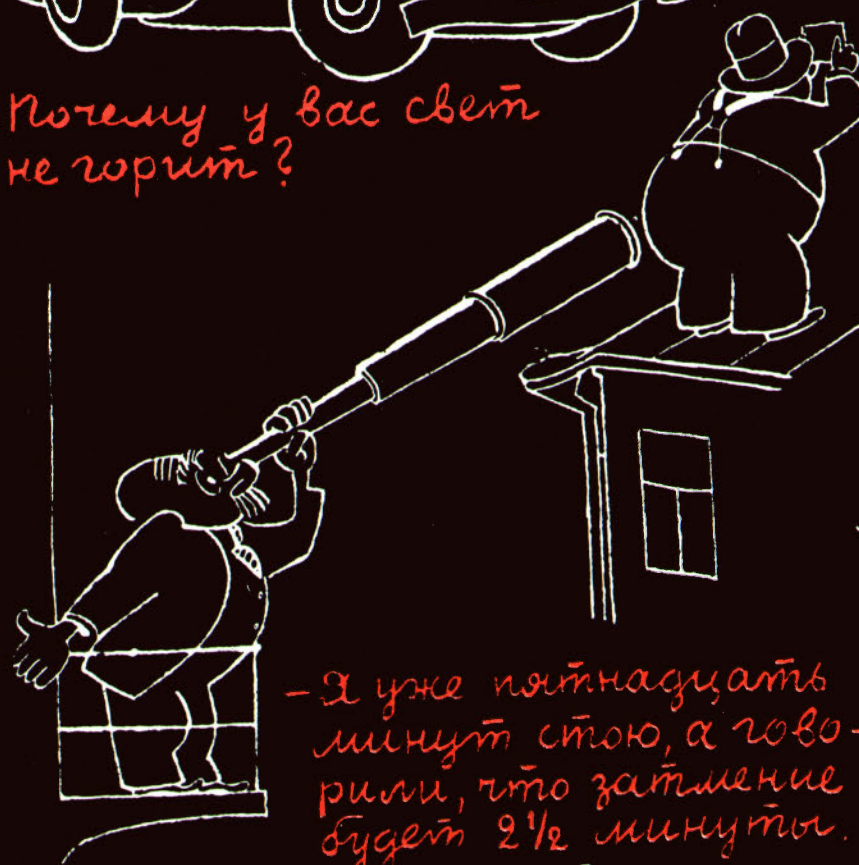 Почему у вас свет
не горит?
– Я уже пятнадцать
минут стою, а гово-
рили, что затмение
будет 2½ минуты.